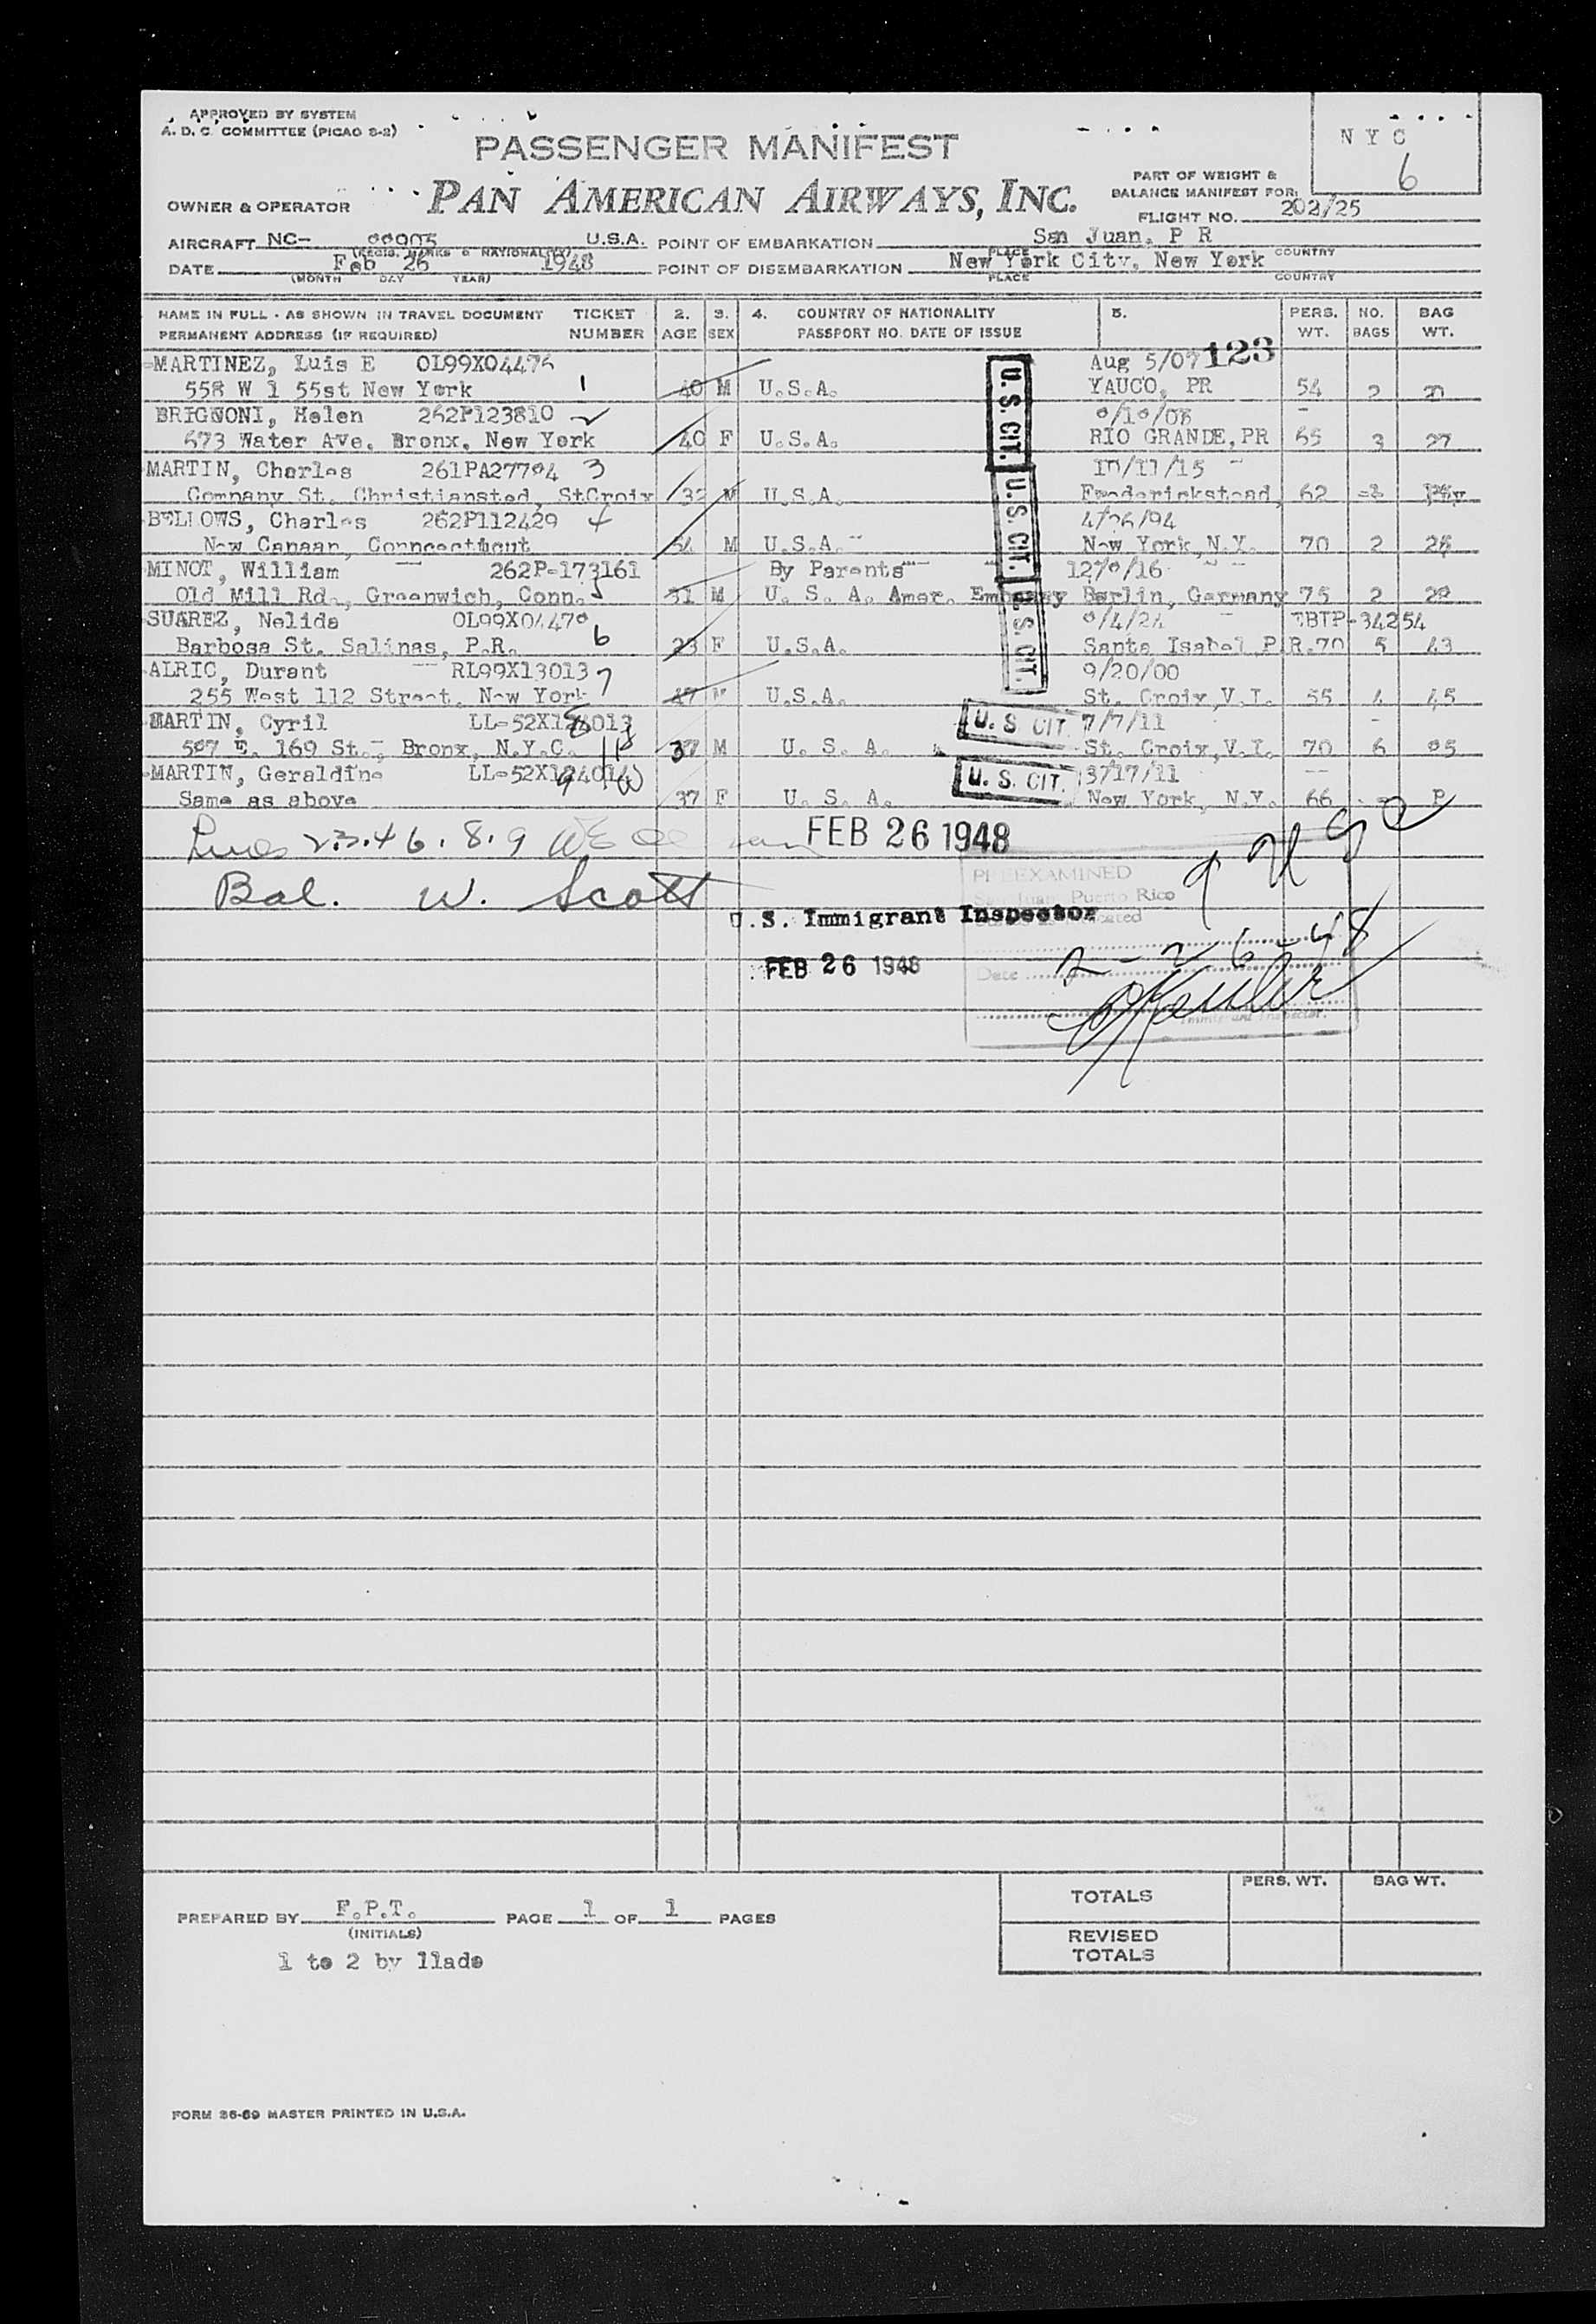 APPROVED BY SYSTEM
A. D. C. COMMITTEE (PICAO 8-2)
PASSENGER MANIFEST
NYC
6
PART OF WEIGHT &
BALANCE MANIFEST FOR:
OWNER & OPERATOR PAN AMERICAN AIRWAYS, INC.
FLIGHT NO. 202/25
AIRCRAFT NC- U.S.A. POINT OF EMBARKATION San Juan, P R
(REGIS. MARKS & NATIONALITY) PLACE COUNTRY
DATE Feb 26 1948 POINT OF DISEMBARKATION New York City, New York
(MONTH DAY YEAR) PLACE COUNTRY
NAME IN FULL - AS SHOWN IN TRAVEL DOCUMENT TICKET 2. 3. 4. COUNTRY OF NATIONALITY 5. PERS. NO. BAG
PERMANENT ADDRESS (IF REQUIRED) NUMBER AGE SEX PASSPORT NO. DATE OF ISSUE WT. BAGS WT.
MARTINEZ, Luis E Aug 5/07 123
558 W 1 55st New York 1 40 M U.S.A. YAUCO, PR 54 2
BRIGNONI, Helen 262P123810 2
673 Water Ave. Bronx, New York 40 F U.S.A. RIO GRANDE, PR 65 3 27
MARTIN, Charles 3
Company St. Christiansted, StCroix 32 M U.S.A. Frederickstead, 62
BELLOWS, Charles 262P112429 4 4/26/94
New Canaan, 54 M U.S.A. New York, N.Y. 70 2
MINOT, William 262P-173161 By Parents
Old Mill Rd., Greenwich, Conn. 5 31 M U. S. A. Amer. Embassy Berlin, Germany 75 2
SUAREZ, Nelida 6
Barbosa St. Salinas, P.R. 23 F U.S.A. Santa Isabel P.R. 70 5 43
ALRIC, Durant RL99X13013 7 9/20/00
255 West 112 Street, New York 47 M U.S.A. St. Croix, V.I. 55 4 45
MARTIN, Cyril 8 7/7/11
507 E. 169 St., Bronx, N.Y.C. 37 M U. S. A. St. Croix, V.I. 70 6
MARTIN, Geraldine 9 3/17/11
Same as above 37 F U. S. A. New York, N.Y. 66
U.S. CIT.
U.S. CIT.
U.S. CIT.
U. S. CIT.
U. S. CIT.
Lines 2.3.4 6. 8. 9
FEB 26 1948
Bal. W. Scott
PREEXAMINED
San Juan, Puerto Rico
U.S. Immigrant Inspector
FEB 26 1948
Date 2-26-48
Immigrant Inspector.
PERS. WT. BAG WT.
TOTALS
PREPARED BY F.P.T. PAGE 1 OF 1 PAGES
(INITIALS)
REVISED
TOTALS
1 to 2 by llado
FORM 36-69 MASTER PRINTED IN U.S.A.